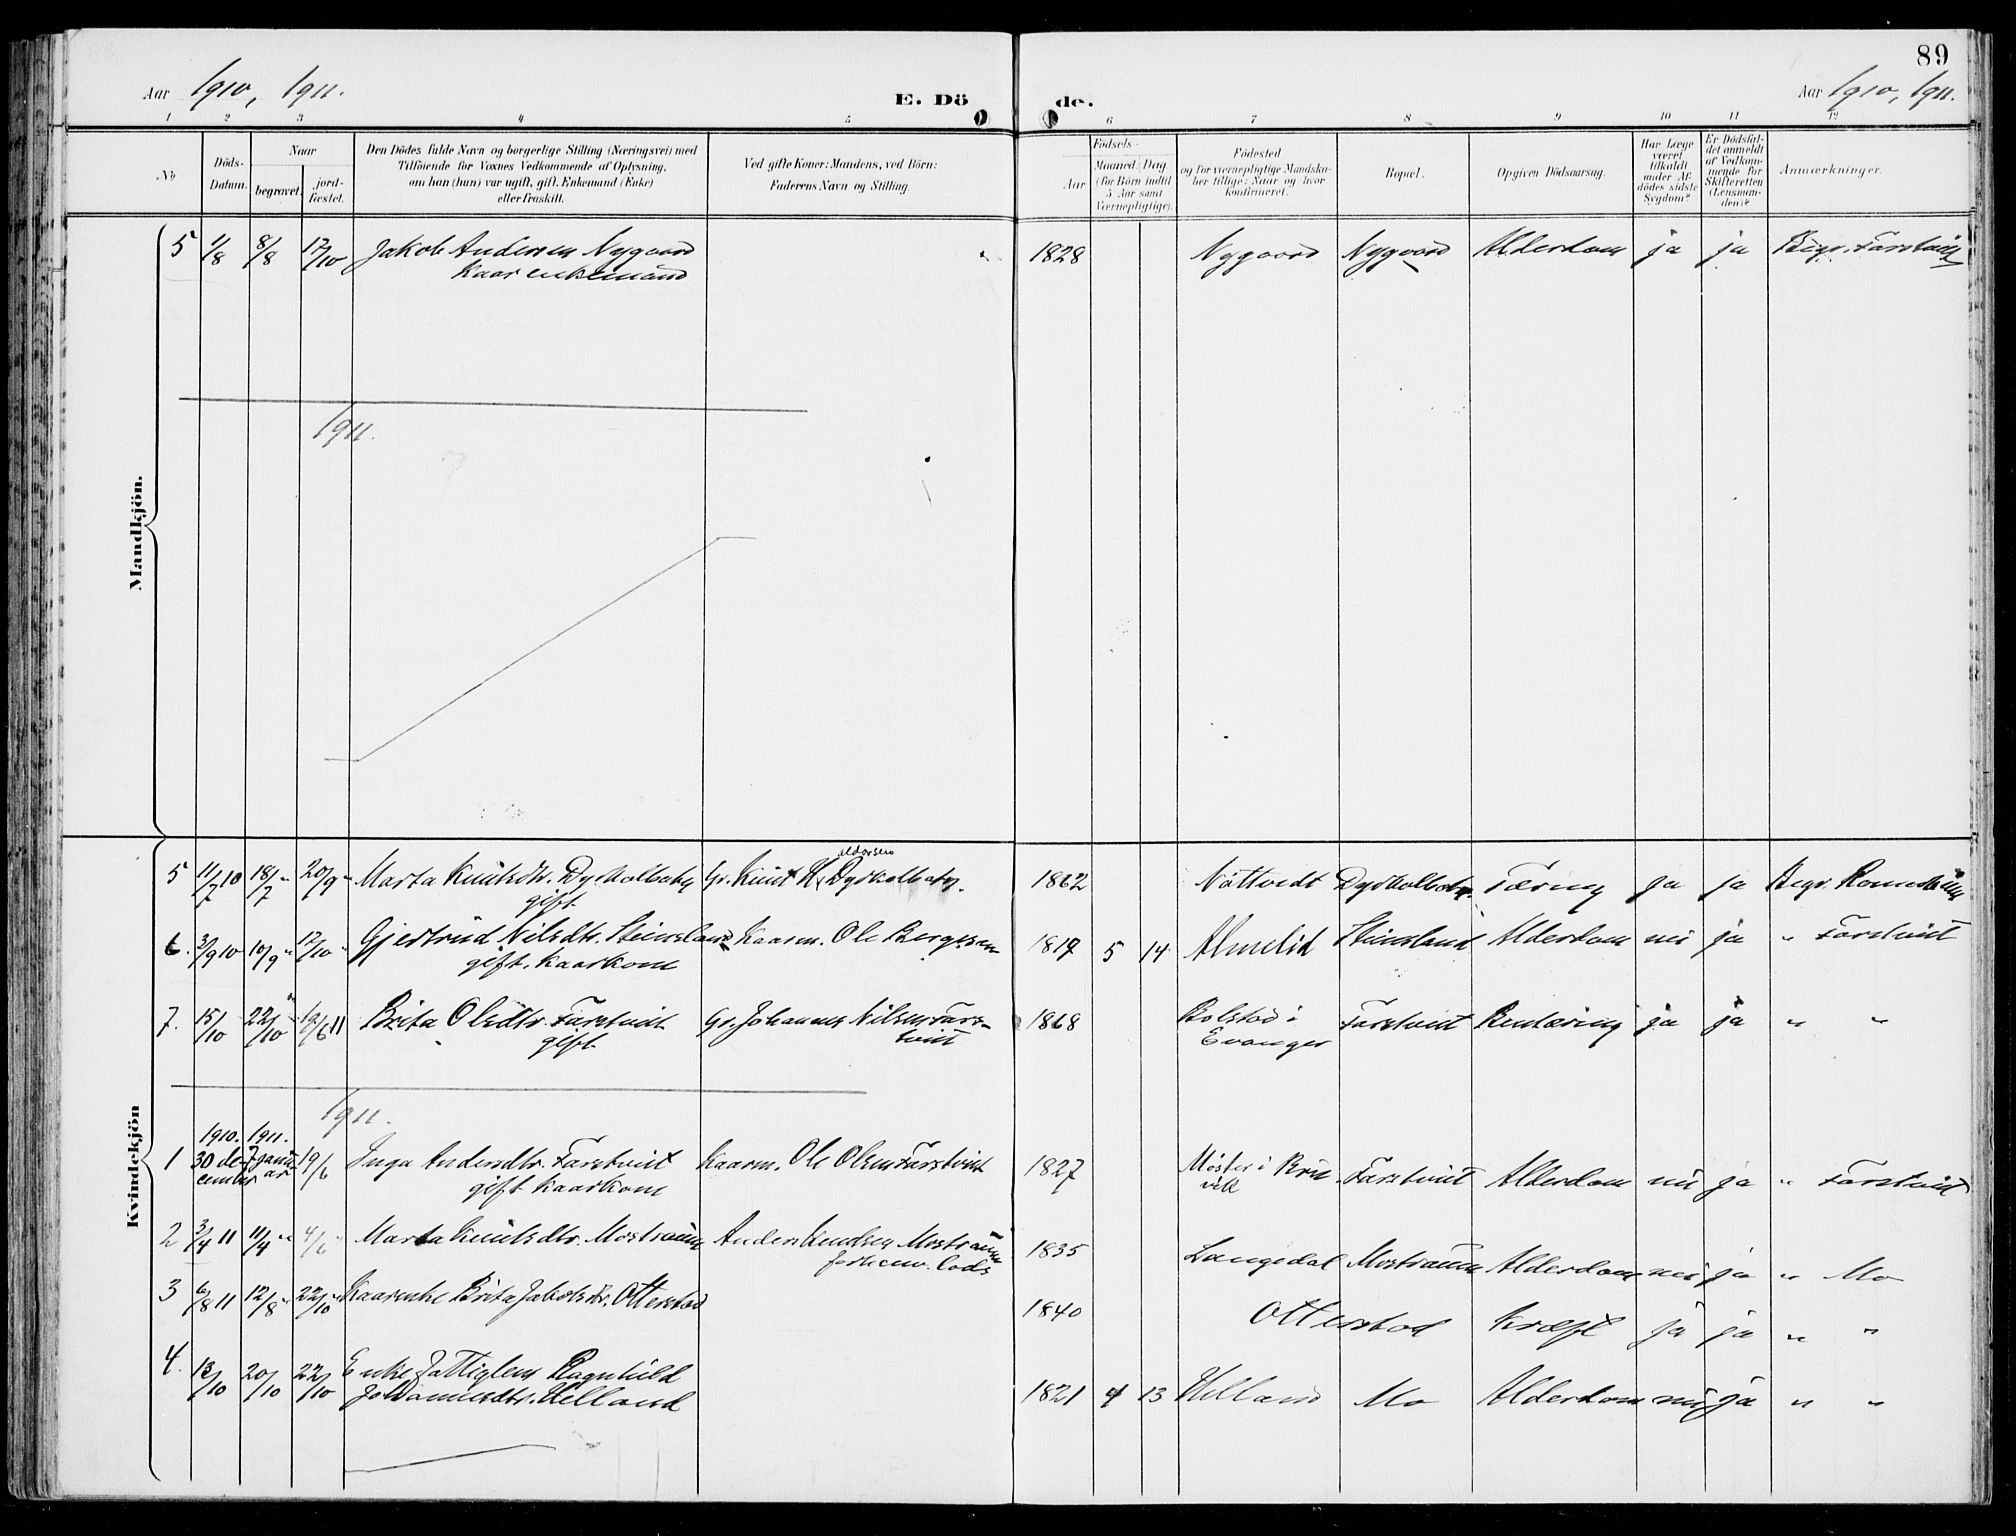 89
Aar 1910, 1911.
E. Dö
de.
Aar 1910, 1911.
1 2 3 4 5 6 7 8 9 10 11 12
No
Döds-
Datum.
Naar
begravet.
jord-
fæstet.
Den Dödes fulde Navn og borgerlige Stilling (Næringsvei) med
Tilföiende for Voxnes Vedkommende af Oplysning,
om han (hun) var ugift, gift, Enkemand (Enke)
eller fraskilt.
Ved gifte Koner: Mandens, ved Börn:
Faderens Navn og Stilling.
Födsels-
Aar
Maaned Dag
(for Börn indtil
5 Aar samt
Værnepligtige).
Födested
og for værnepligtige Mandska-
ber tillige: Naar og hvor
konfirmeret.
Bopæl.
Opgiven Dödsaarsag.
Har Læge
været
tilkaldt
under Af-
dödes sidste
Sygdom?
Er Dödsfal-
det anmeldt
af Vedkom-
mende for
Skifteretten
(Lensman-
den)?
Anmærkninger.
Mandkjön.
5 1/8 8/8 17/10 Jakob Andersen Nygaard 1828 Nygaard Nygaard Alderdom ja ja Begr. Farstviit
Kaarenkemand
1911.
Kvindekjön
5 11/7 10 18/7 " 20/9 " Marta Knutsdtr. Dyrkolbotn Gr. Knut H Dyrkolbotn. 1862 Nøttvedt Dyrkolbotn Tæring ja ja Begr. Romarheim
aldorsen
gift
6. 3/9 10 10/9 " 17/10 " Gjertrud Nilsdtr. Steinsland Kaarm. Ole Bergesen 1819 5 14 Almelid Steinsland Alderdom nei ja " Farstvit
gift. kaarkone
7. 15/10 22/10 " 19/6 11 Brita Olsdtr. Farstveit Gr. Johannes Nilsen Fars- 1868 Bolstad i Farstveit ja ja " "
gift tveit Evanger
1911.
1910. 1911.
1 30 de- 7 janu- 19/6 Inga Andersdtr. Farstveit Kaarm. Ole Olsen Farstveit 1827 Møster i Farstveit Alderdom nei ja " Farstveit
cember ar gift kaarkone
2 3/4 11 11/4 " 4/6 " Marta Knutsdtr. Mostraum Anders Knudsen Mostraum 1835 Langedal Mostraum Alderdom nei ja " Mo
forhenv. Lods
3 6/8 11 12/8 " 22/10 " Kaarenke Brita Jakobsdtr. Otterstad 1840 Otterstad Kræft ja ja " "
4. 13/10 20/10 22/10 Enke Fattiglem Ragnhild
Johannesdtr. Helland 1821 4 13 Helland Mo Alderdom nei ja " "